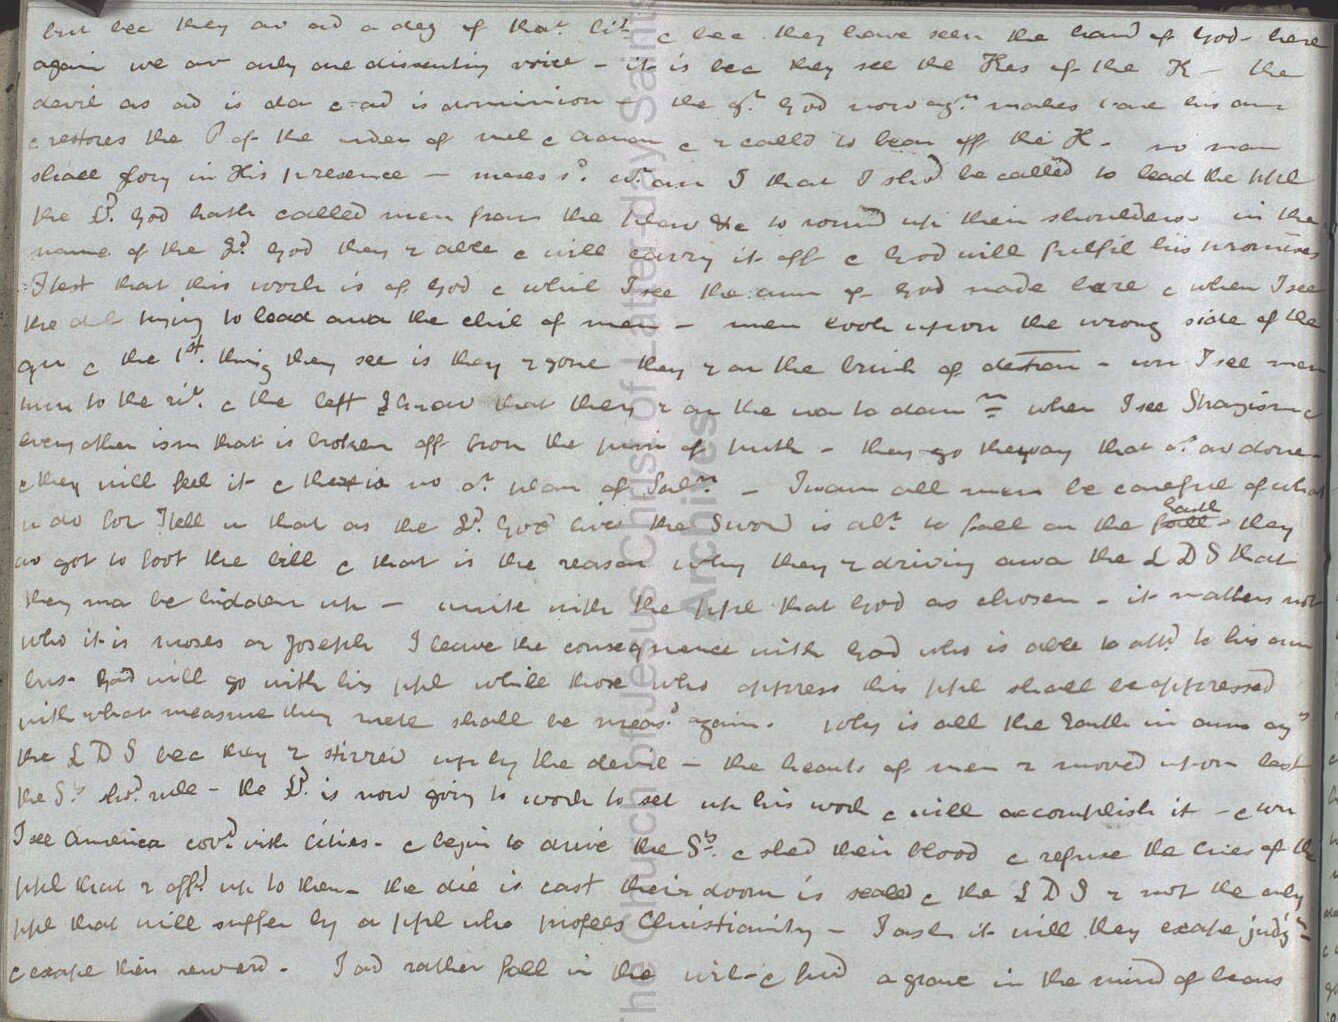 but bec they av ad a deg of that lit. c bec. they have seen the hand of God - here
again we av only one dissenting voice - it is bec they see the Kes of the K - the
devil as ad is da c ad is dominion - the gt. God now agn. makes bare his arm
c restores the P of the order of Mel c Aaron c r called to bear off the K - no man
shall glory in His presence - moses sd. who am I that I shod be called to lead the ppl
the Ld. God hath called men from the plow &c to round up their shoulders - in the
name of the Ld. God they r able c will carry it off c God will fulfil his promises
I test that this work is of God c while I see the arm of God made bare c when I see
the del trying to lead awa the chil of men - men look upon the wrong side of the
qn c the 1st. thing they see is they r gone they r on the brink of destion - wn I see men
turn to the rit. c the left I know that they r on the wa to damn when I see Strangism c
every other ism that is broken off from the prin of truth - they go the way that or. av done -
c they will feel it c there is no or. plan of Saln. - I warn all men be careful of what
u do for I tell u that as the Ld. God lives the Sword is abt. to fall on the fall Earth - they
av got to foot the bill c that is the reason why they r driving awa the L D S that
they ma be hidden up - unite with the ppl that God as chosen - it matters not
who it is moses or Joseph I leave the consequence with God who is able to attd to his own
bus - God will go with his ppl while those who oppress this ppl shall be oppressed
with what measure they mete shall be measd again. Why is all the Earth in arms agt
the L D S bec they r stirred up by the devil - the hearts of men r moved upon lest
the Sts shod. rule - the Ld. is now going to work to set up his work c will accomplish it - c wn
I see America covd. with Cities - c begin to drive the Sts c shed their blood c refuse the cries of the
ppl that r offd up to them - the die is cast their doom is seald c the L D S r not the only
ppl that will suffer by a ppl who profess Christianity - I ask it will they escape judgt -
c escape their reward - I ad rather fall in the wil - c find a grave in the mind of beans